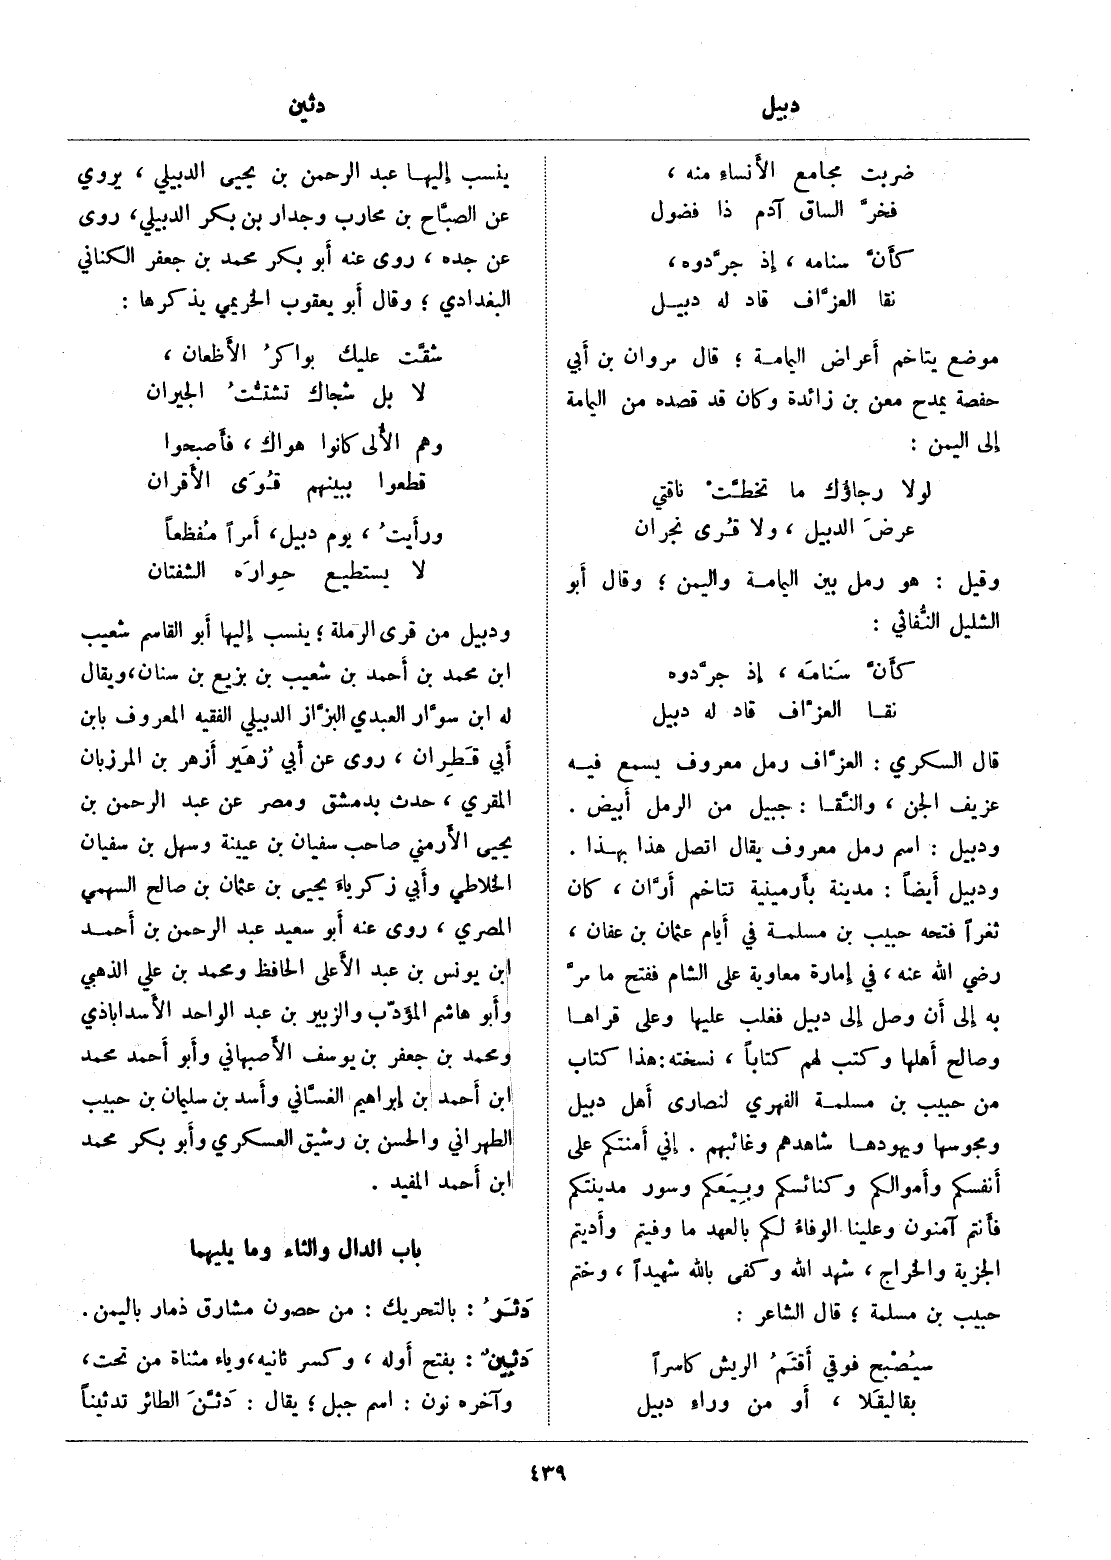 دبيل
دثين
ضربت مجامع الأنساء منه ،
فخرَّ الساق آدم ذا فضول
كأنَّ سنامه ، إذ جرَّدوه ،
نقا العزَّاف قاد له دبيل
موضع يتاخم أعراض اليمامة ؛ قال مروان بن أبي
حفصة يمدح معن بن زائدة وكان قد قصده من اليمامة
إلى اليمن :
لولا رجاؤك ما تخطَّتْ ناقتي
عرضَ الدبيل ، ولا قُرى نجران
وقيل : هو رمل بين اليمامة واليمن ؛ وقال أبو
الشليل النُّفاثي :
كأنَّ سَنامَه ، إذ جرَّدوه
نقا العزَّاف قاد له دبيل
قال السكري : العزَّاف رمل معروف يسمع فيه
عزيف الجن ، والنَّقا : جبيل من الرمل أبيض .
ودبيل : اسم رمل معروف يقال اتصل هذا بهذا .
ودبيل أيضاً : مدينة بأرمينية تتاخم أرَّان ، كان
ثغراً فتحه حبيب بن مسلمة في أيام عثمان بن عفان ،
رضي الله عنه ، في إمارة معاوية على الشام ففتح ما مرَّ
به إلى أن وصل إلى دبيل فغلب عليها وعلى قراها
وصالح أهلها وكتب لهم كتاباً ، نسخته: هذا كتاب
من حبيب بن مسلمة الفهري لنصارى أهل دبيل
ومجوسها ويهودها شاهدهم وغائبهم . إني أمنتكم على
أنفسكم وأموالكم وكنائسكم وبِيَعكم وسور مدينتكم
فأنتم آمنون وعلينا الوفاءُ لكم بالعهد ما وفيتم وأديتم
الجزية والخراج ، شهد الله وكفى بالله شهيداً ، وختم
حبيب بن مسلمة ؛ قال الشاعر :
سيُصْبح فوقي أقتَمُ الريش كاسراً
بقاليقَلا ، أو من وراءِ دبيل
ينسب إليها عبد الرحمن بن يحيى الدبيلي ، يروي
عن الصبَّاح بن محارب وجدار بن بكر الدبيلي، روى
عن جده ، روى عنه أبو بكر محمد بن جعفر الكناني
البغدادي ؛ وقال أبو يعقوب الخريمي يذكرها :
شقَّت عليك بواكرُ الأظعان ،
لا بل شجاك تشتُّتُ الجيران
وهم الأُلى كانوا هواك ، فأصبحوا
قطعوا ببينهم قُوَى الأقران
ورأيتُ ، يوم دبيل، أمراً مُفظعاً
لا يستطيع حِوارَه الشفتان
ودبيل من قرى الرملة ؛ ينسب إليها أبو القاسم شعيب
ابن محمد بن أحمد بن شعيب بن بزيع بن سنان، ويقال
له ابن سوَّار العبدي البزَّاز الدبيلي الفقيه المعروف بابن
أبي قَطِران ، روى عن أبي زُهَير أزهر بن المرزبان
المقري ، حدث بدمشق ومصر عن عبد الرحمن بن
يحيى الأرمني صاحب سفيان بن عيينة وسهل بن سفيان
الخلاطي وأبي زكرياءَ يحيى بن عثمان بن صالح السهمي
المصري ، روى عنه أبو سعيد عبد الرحمن بن أحمد
ابن يونس بن عبد الأعلى الحافظ ومحمد بن علي الذهبي
وأبو هاشم المؤدّب والزبير بن عبد الواحد الأسداباذي
ومحمد بن جعفر بن يوسف الأصبهاني وأبو أحمد محمد
ابن أحمد بن إبراهيم الغسَّاني وأسد بن سليمان بن حبيب
الطهراني والحسن بن رشيق العسكري وأبو بكر محمد
ابن أحمد المفيد .
باب الدال والثاء وما يليهما
دَثَرُ : بالتحريك : من حصون مشارق ذمار باليمن .
دَثِينٌ : بفتح أوله ، وكسر ثانيه، وياء مثناة من تحت،
وآخره نون : اسم جبل ؛ يقال : دَثَّنَ الطائر تدثيناً
٤٣٩